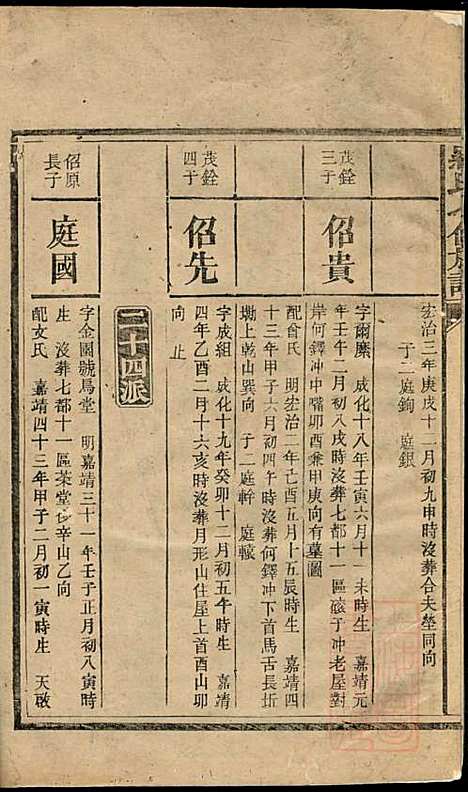 宏治三年庚戌十二月初九申時沒葬合夫塋同向
子二庭鉤 庭銀
茂銓
三子
佋貴
字爾縻 成化十八年壬寅六月十一未時生 嘉靖元
年壬午二月初八戌時沒葬七都十一區 子冲老屋對
岸何鐸冲中嘴卯酉兼甲庚向有墓圖
配曾氏 明宏治二年己酉五月十五辰時生 嘉靖四
十三年甲子六月初四午時沒葬何鐸冲下首馬舌長圻
坳上乾山巽向 子二庭幹 庭轅
茂銓
四子
佋先
字成組 成化十九年癸卯十二月初五午時生 嘉靖
四年乙酉二月十六亥時沒葬月形山住屋上首酉山卯
向 止
二十四派
佋原
長子
庭國
字金園號馬堂 明嘉靖三十一年壬子正月初八寅時
生 沒葬七都十一區茶堂 辛山乙向
配文氏 嘉靖四十三年甲子二月初一寅時生 天啟